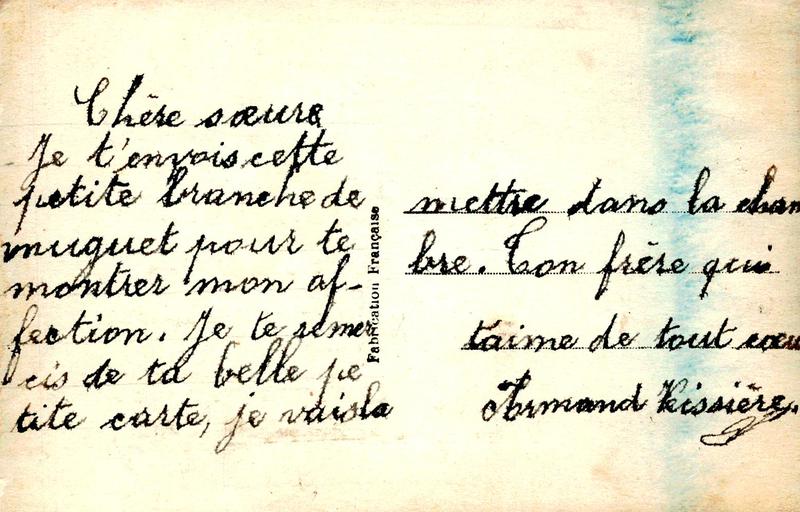 Chère sœure
Je t'envois cette
petite branche de
muguet pour te
montrer mon af-
fection. Je te remer
cis de ta belle pe
tite carte, je vais la
Fabrication Française
mettre dans la cham
bre. Ton frère qui
taime de tout cœu
Armand Vissière.